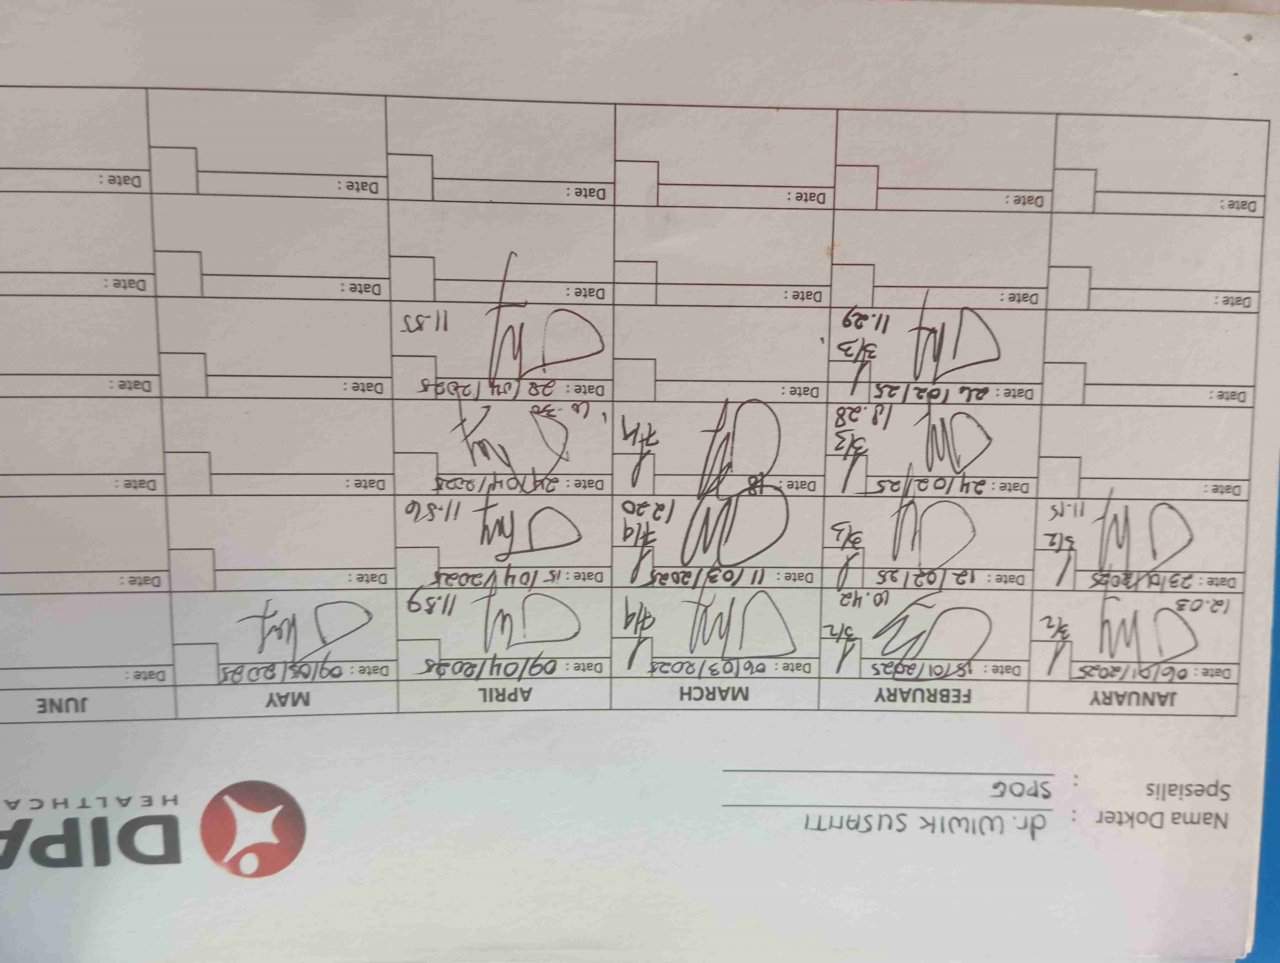 DIPA
HEALTHCA
Nama Dokter : dr. WIWIK SUSANTI
Spesialis : SPOG
JANUARY FEBRUARY MARCH APRIL MAY JUNE
Date: 06/01/2025 Date: 15/01/2025 Date: 06/03/2025 Date: 09/04/2025 Date: 09/05/2025 Date:
12.03 3/2 10.42 3/2 7/4 11.59
Date: 23/01/2025 Date: 12/02/25 Date: 11/03/2025 Date: 15/04/2025 Date: Date:
11.15 3/2 3/3 7/4 12.20 11.56
Date: Date: 24/02/25 Date: 18 Date: Date: Date:
3/3 18.28 7/4
Date: Date: 26/02/25 Date: Date: 28/04/2025 Date: Date:
3/3 11.29 11.55
Date: Date: Date: Date: Date: Date:
Date: Date: Date: Date: Date: Date: